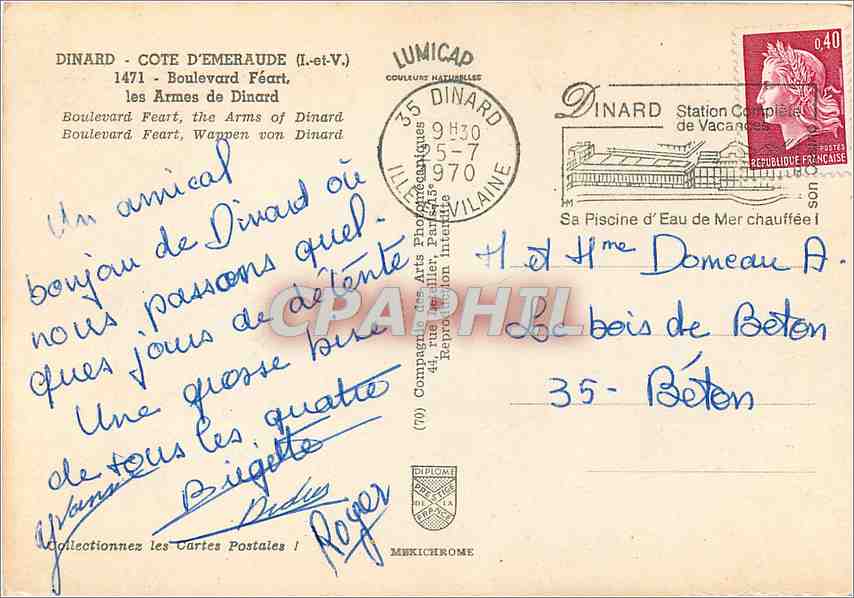 DINARD - COTE D'EMERAUDE (I.-et-V.)
1471 - Boulevard Féart,
les Armes de Dinard
Boulevard Feart, the Arms of Dinard
Boulevard Feart, Wappen von Dinard
LUMICAP
COULEURS NATURELLES
35 DINARD
9H30
25-7
1970
ILLE VILAINE
DINARD Station Complète
de Vacances
Sa Piscine d'Eau de Mer chauffée !
son
0,40
POSTES
REPUBLIQUE FRANÇAISE
Un amical
bonjou de Dinard où
nous passons quel-
ques jours de détente
Une grosse bise
de tous les quatre
Yvonne
Brigitte
Roger
H et Hme Domeau A.
Le bois de Beton
35 - Béton
(70) Compagnie des Arts Photomécaniques
44, rue Letellier, Paris-15e
Reproduction interdite
CPAPHIL
DIPLOME
PRESTIGE
DE LA
FRANCE
MEXICHROME
Collectionnez les Cartes Postales !